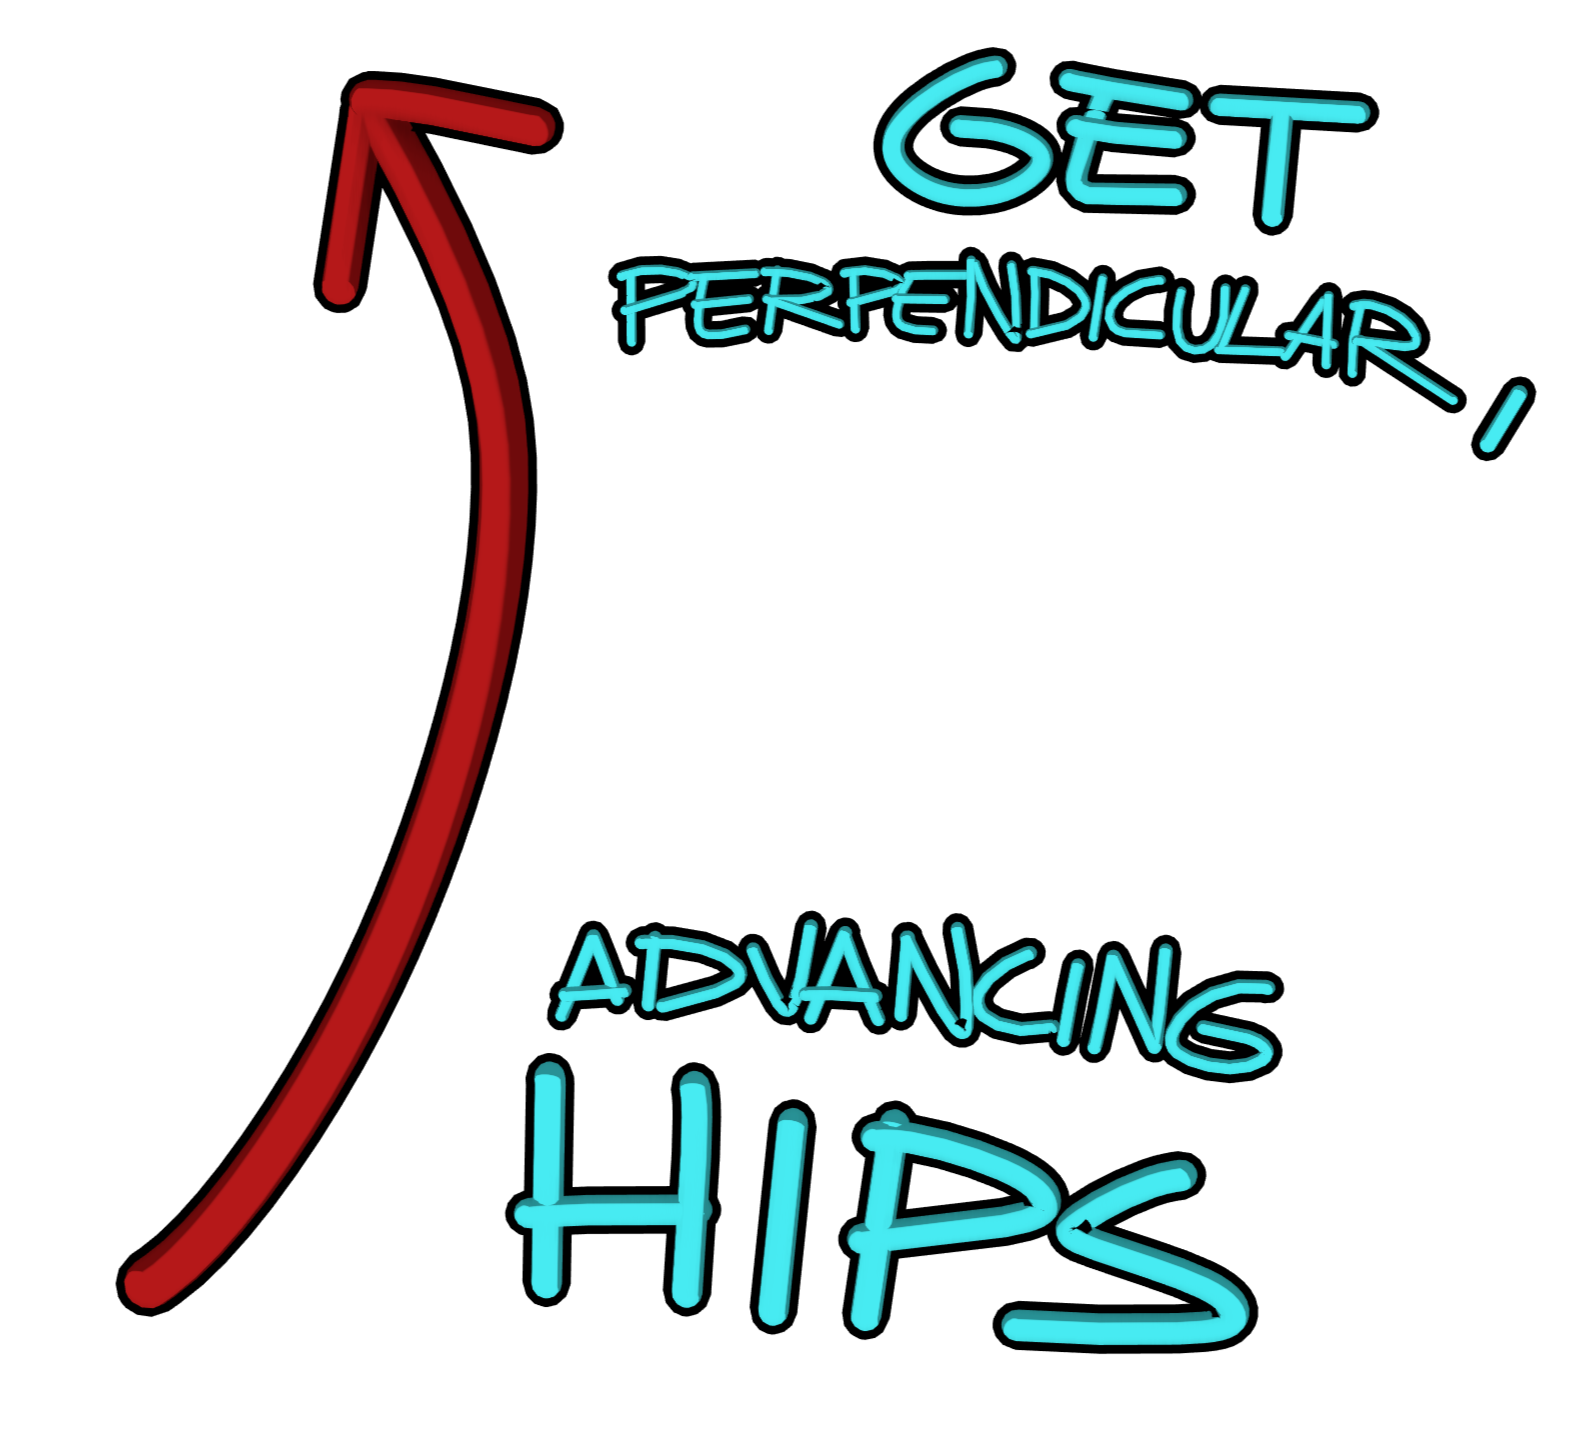 GET
PERPENDICULAR,
ADVANCING
HIPS